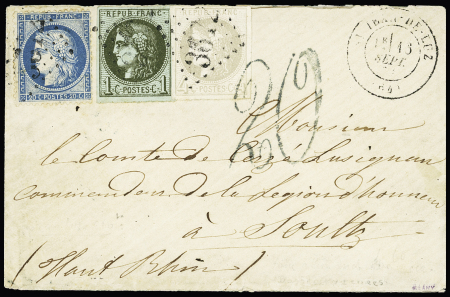 REPUB·FRANC·
20 C·POSTES·20 C·
REPUB·FRANC·
1 C·POSTES·C·1
ST JEAN-DE-LUZ
SEPT.
Monsieur
le Comte de Lusignan
commandeur de la Legion d'honneur
à Soultz
(Haut Rhin)